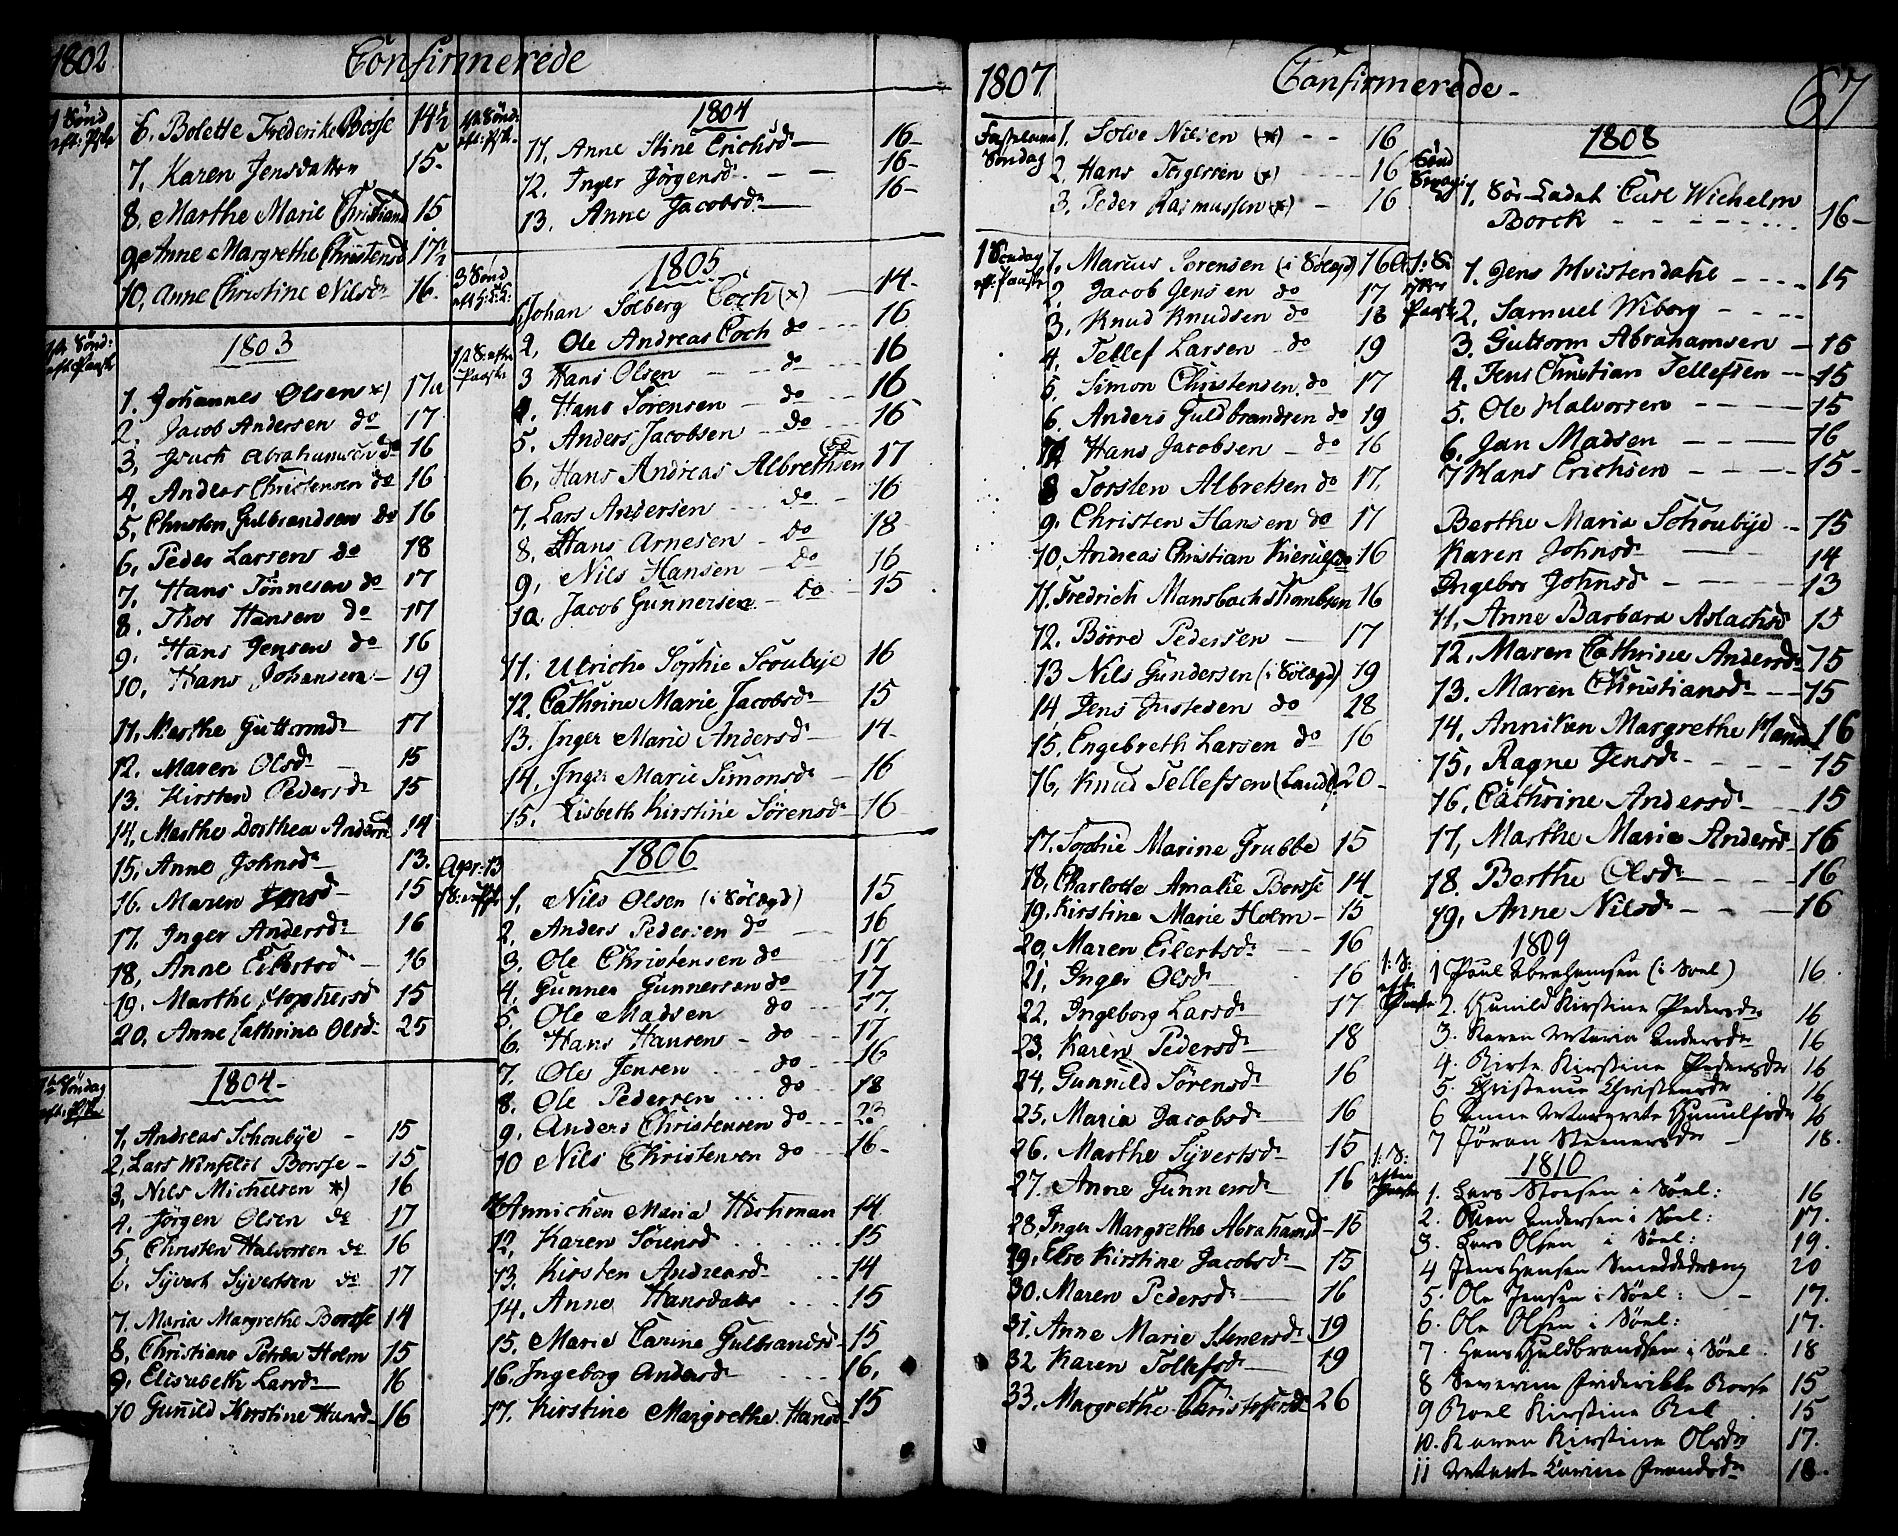 1802 Confirmerede
1 Sønd
eft: Pske
6. Bolette Frederike Bosse 14½
7. Karen Jensdatter 15-
8. Marthe Marie Christiand 15
9. Anne Margrethe Christensd 17½
10. Anne Christine Nilsdr 16.
1803
eft Paaske
1. Johannes Olsen *) 17
2. Jacob Andersen do 17
3. Isach Abrahamsen do 16
4. Anders Christensen do 16
5. Christen Gulbrandsen do 16
6. Peder Larsen do 18
7. Hans Tønnesen do 17
8. Thor Hansen do 17
9. Hans Jensen do 16
10. Hans Johansen - 19
11. Marthe Guttormdr 17
12. Maren Olsdr 15
13. Kirsten Pedersdr 15
14. Marthe Dorthea Andersd 14
15. Anne Johnsdr 13.
16. Maren Jensd 15
17. Inger Andersdr 16
18. Anne Eilertsdr - 16
19. Marthe Christophersd 15
20. Anne Cathrine Olsdr 25
1804-
Søndag
1. Andreas Schoubye - 15
2. Lars Winfeldt Borsse - 15
3. Nils Michelsen *) 16
4. Jörgen Olsen do 17
5. Christen Halvorsen do 16
6. Syvert Syvertsen do 17
7. Maria Margrethe Borsse 14
8. Christiane Petrea Holm 15
9. Elisabeth Larsdr 16
10 Gunild Kirstine Hansd 16
1804
Sønd
eft: Pske
11. Anne Stine Erichsdr 16-
12. Inger Jörgensdr - - 16-
13. Anne Jacobsdr 16-
1805
3 Sønd
1. Johan Solberg Coch (x) 14-
2. Ole Andreas Coch do 16
Paaske
3 Hans Olsen - do 16
4. Hans Sörensen - do 16
5. Anders Jacobsen - do 16
6. Hans Andreas Albrethsen (do 17
7. Lars Andersen - do - 16
8. Hans Arnesen - do 18
9. Nils Hansen - do 16
10. Jacob Gunnersen - do 15
11. Ulriche Sophie Scoubye 16
12. Cathrine Marie Jacobsdr 15
13. Inger Marie Andersdr 14-
14. Inger Marie Simonsdr 16
15. Lisbeth Kirstine Sörensdr 16
1806
Apr: 13
1. Nils Olsen (i Sölægd) 15
2. Anders Pedersen do 16
3. Ole Christensen do 17
4. Gunner Gunnersen do 17
5. Ole Madsen do 17.
6. Hans Hansen - do 17
7. Ole Jensen do 16
8. Ole Pedersen ... do 18
9. Anders Christensen do 23
10 Nils Christensen do 16-
11. Annichen Maria Hichman 14
12. Karen Sörensd 15
13. Kirsten Andreasdr 14
14. Anne Hansdatter 15
15. Marie Carine Gulbrandsd 15
16. Ingeborg Andersdr 16.
17. Kirstine Margrethe Hansdr 15
1807 Confirmerede - 67
Fastelavns
Søndag
1. Solve Nilsen (x) - - 16
2. Hans Torgersen (x) - 16
3. Peder Rasmussen (x) - 16
1 Søndag
eft: Paaske
1. Marcus Sorensen (i Sölægd) 16
2. Jacob Jensen do 17
3. Knud Knudsen do 18
4. Tellef Larsen do 19
5. Simon Christensen do 17
6. Anders Guldbrandsen do 19
7. Hans Jacobsen - do 16
8 Torsten Albretsen do 17.
9. Christen Hansen do 17
10. Andreas Christian Kierulf do 16
11. Fredrich Mansbach Thomsen 16
12. Börre Pedersen - 17
13 Nils Gundersen (i Sölægd) 19
14. Jens Justesen do 28
15. Engebreth Larsen do 16
16. Knud Tellefsen (Land 20-
17. Sophie Marine Grubbe 15
18. Charlotte Amalie Borsse 14
19. Kirstine Marie Holm - 15
20. Maren Eilertsdr 16
21. Inger Olsdr 16
22. Ingeborg Larsdr 17
23. Karen Pedersdr 18
24. Gunnild Sörensdr 16
25. Maria Jacobsdr 16
26. Marthe Syvertsdr 15
27. Anne Gunnersdr 16
28. Inger Margrethe Abrahamsd - 15
29. Else Kirstine Jacobsdr 15
30. Maren Pedersdr 16
31. Anne Marie Stenersdr 19
32. Karen Tollefsdr 19
33. Margrethe Christophersdr 26
1808
Sønd
1. Söe-Cadet Carl Wichelm
Borck - - - 16-
1: S:
efter
Paaske
1. Jens Hvistendahl - - - 15
2. Samuel Wiborg - - -
3. Guttorm Abrahamsen - 15
4. Jens Christian Tellefsen - 15
5. Ole Halvorsen - - - 15
6. Jan Madsen - - - 16
7 Hans Erichsen - - - 15-
Berthe Maria Schoubye - 15
Karen Johnsdr - 14
Ingebor Johnsdr - - - 13
11. Anne Barbara Aslachsdr 15
12. Maren Cathrine Andersdr 15
13. Maren Christiansdr - - 15
14. Anniken Margrethe Hansd 16
15. Ragne Jensdr - - - 15
16. Cathrine Andersdr - 15
17. Marthe Maria Andersdr - 16
18. Berthe Olsdr - - 16
19. Anne Nilsdr - - - 16
1809
1: S:
efter
Paaske
1 Poul Abrahamsen (i Soel) 16.
2. Gunild Kirstine Pedersdr 16
3. Karen Maria Andersdr 16
4. Birte Kirstine Pedersdr 16
5. Christence Christensdr 16
6 Anne Margrete Gunulfsdr 16
7 Jøran Steenersdr - 18.
1810
1: S:
efter
Paaske
1. Lars Olsen i Søel: 16
2. Steen Andersen i Søel: 17.
3. Lars Olsen i Søel: 19.
4 Jens Hansen Smeddedreng 20
5. Ole Jensen i Søel: - 17.
6. Ole Olsen i Søel: 17.
7. Hans Guldbrandsen i Søel. 18
8 Severine Friderikke Borse 15
9 Roel Kirstine 15
10. Karen Kirstine Olsdr 17.
11 Marte Karine 18.